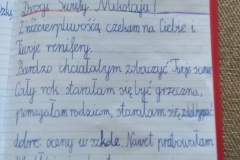 Drogi Święty Mikołaju!
Z niecierpliwością czekam na Ciebie i
Twoje renifery.
Bardzo chciałabym zobaczyć Twoje sanie
Cały rok starałam się być grzeczna,
pomagałam rodzicom, starałam się zdobywać
dobre oceny w szkole. Nawet próbowałam